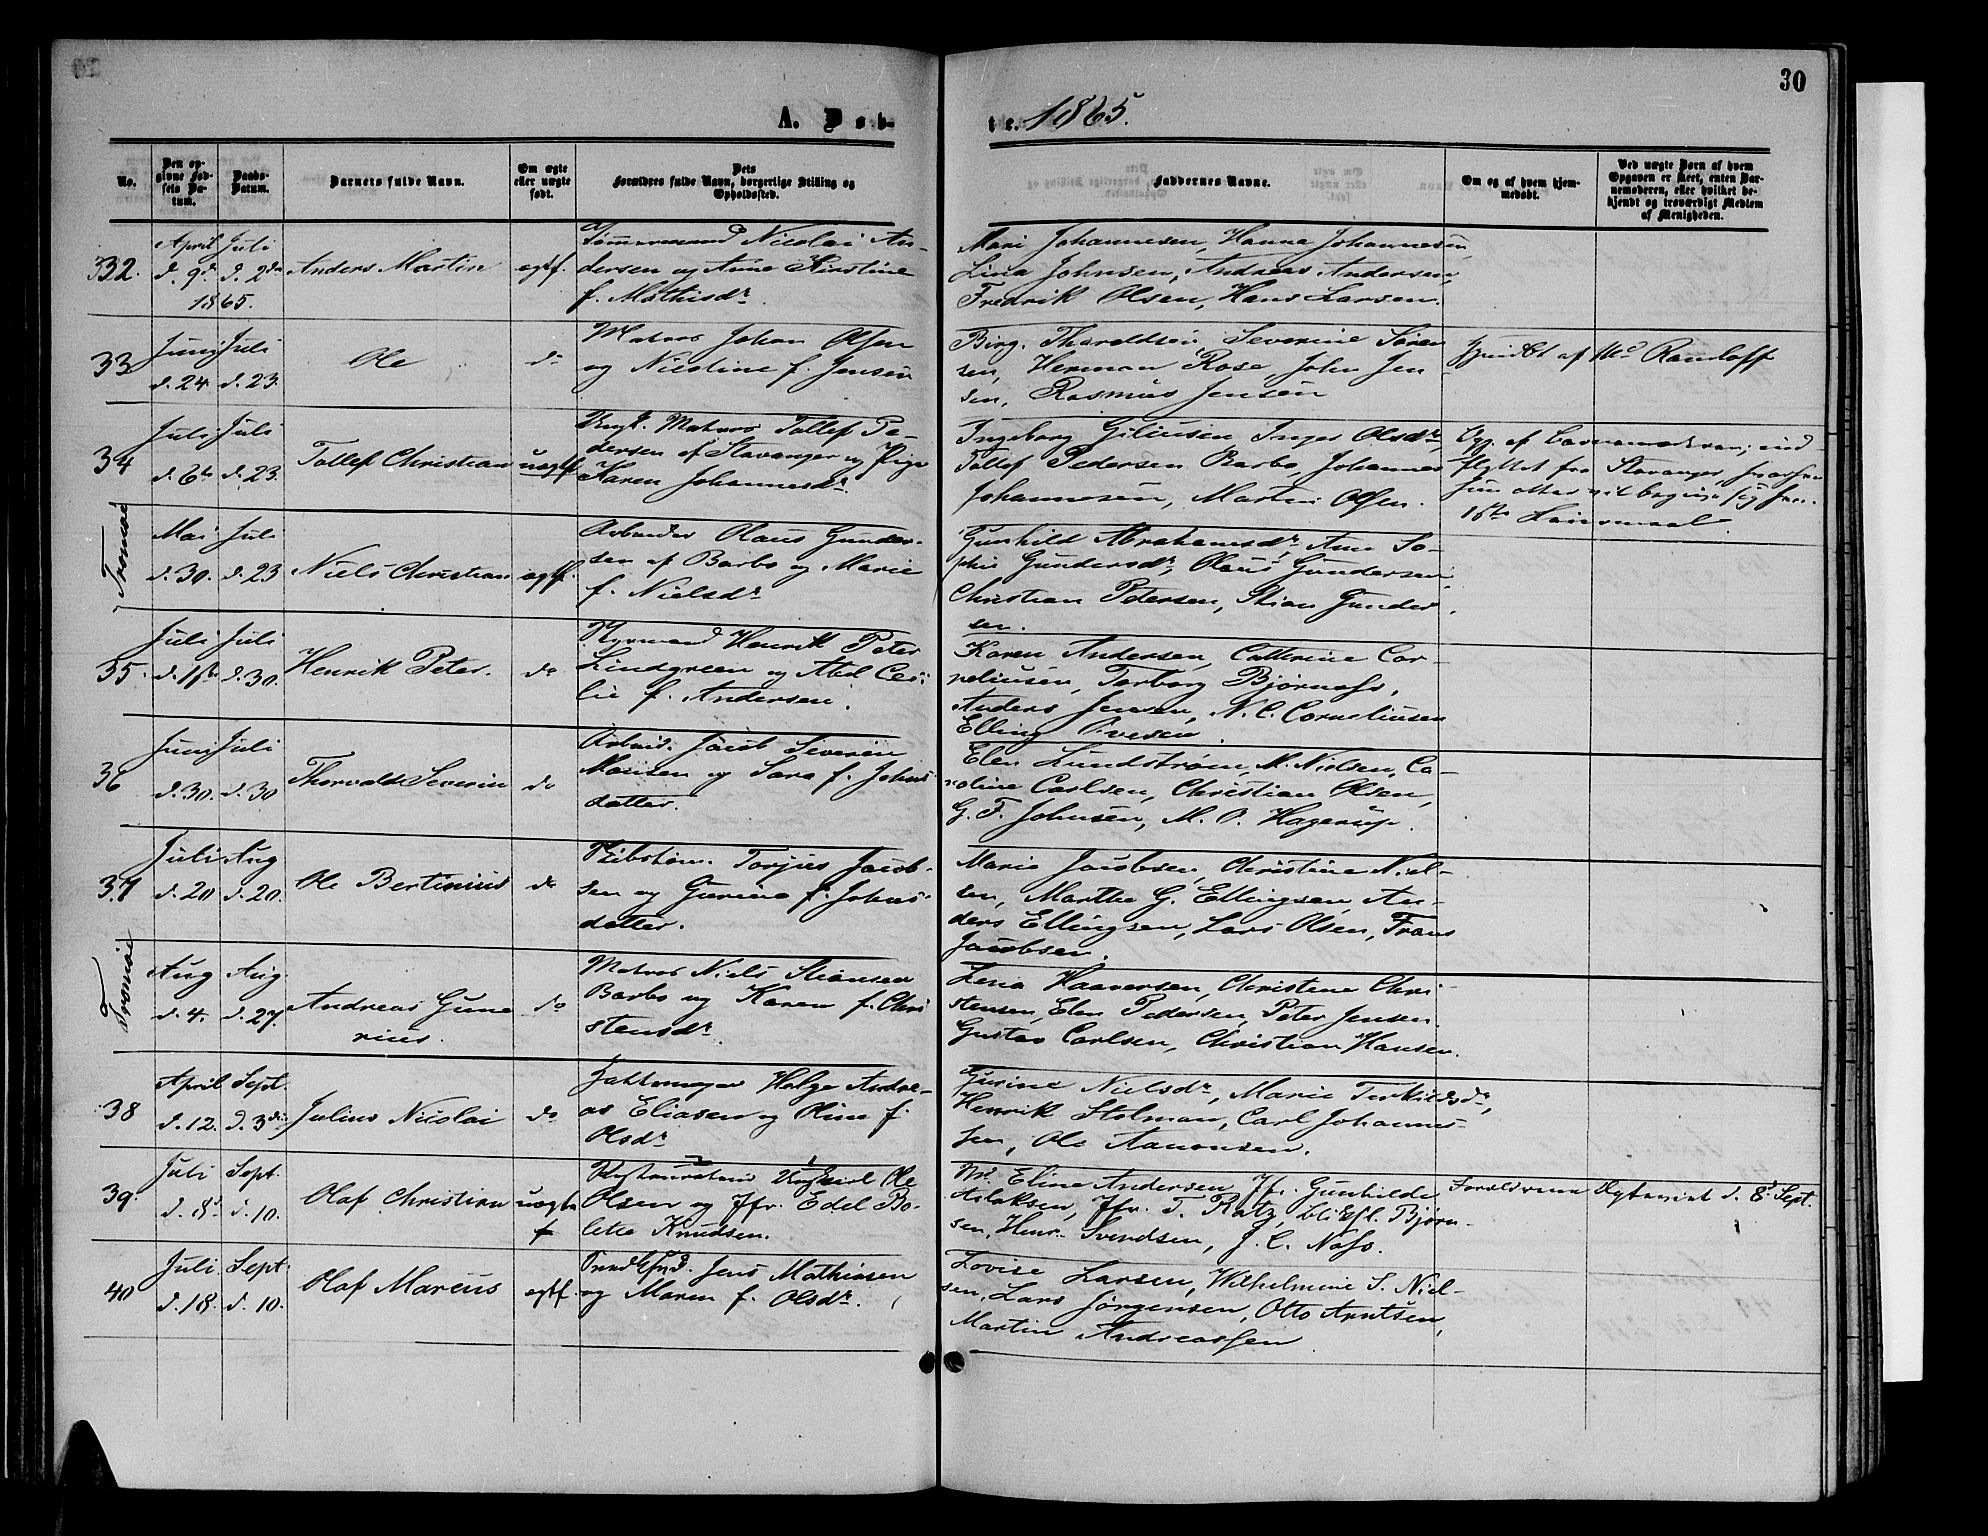 30
A. Døb-
te. 1865.
No.
Den op-
givne Fød-
sels Da-
tum.
Daabs-
Datum.
Barnets fulde Navn.
Om ægte
eller uægte
født.
Dets
Forældres fulde Navn, borgerlige Stilling og
Opholdssted.
Faddernes Navne.
Om og af hvem hjem-
medøbt.
Ved uægte Børn af hvem
Opgaven er skeet, enten Bar-
nemoderen, eller hvilket be-
kjendt og troværdigt Medlem
af Menigheden.
332.
April
d. 9d.
1865.
Juli
d. 2den
Anders Martin
ægtf.
Tømmermand Nicolai An-
dersen og Anne Kirstine
f. Mathisdr.
Mari Johannesen, Hanna Johannesen,
Lina Johnsen, Andreas Andersen,
Fredrik Olsen, Hans Larsen.
33
Junj
d. 24.
Juli
d. 23.
Ole
do
Matros Johan Olsen
og Nicoline f. Jensen
Birg. Tharaldsen, Severine Sören
sen, Herman Rose, John Jen-
sen, Rasmus Jensen
af Md Ramloff
34
Juli
d. 6te
Juli
d. 23.
Tollef Christian
uægtf
Ungk. Matros Tollef Pe-
dersen af Stavanger og Pige
Karen Johannesdr.
Ingeborg Giliusen Inger Olsdr,
Tollef Pedersen Barbo, Johannes
Johannesen, Martin Olsen.
Opg. af Barnemoderen; ind-
flyttet fra Stavanger,
1ste Leiermaal
Tromøe
Mai
d. 30.
Juli
d. 23
Niels Christian
ægtf.
Arbeider Olaus Gunder-
sen af Barbo og Marie
f. Nielsdr
Gunhild Abrahamsdr, Ane So-
phie Gundersdr, Olaus Gundersen,
Christian Petersen, Stian Gunder
sen.
35.
Juli
Juli
d. 30.
Henrik Peter.
do
Styrmand Henrik Peter
Lindgreen og Abel Ceci-
lie f. Andersen.
Karen Andersen, Cathrine Cor-
neliusen, Torborg Bjørnass.
Anders Jensen, N. C. Corneliusen
Elling Ovesen.
36
Junj
d. 30.
Juli
d. 30
Thorvald Severin
do
Arbeid. Jacob Severin
Monsen og Sara f. Johns-
datter.
Elen Lundstrøm, M. Nielsen, Ca-
roline Carlsen, Christian Olsen,
G. F. Johnsen, M. O. Hagerup.
37
Juli
d. 20
Aug
d. 20.
Ole Bertinius
do
Skibstøm. Torjus Jacob-
sen og Gurine f. Johns-
datter.
Marie Jacobsen, Christine Niel-
sen, Marthe G. Ellingsen, An-
ders Ellingsen, Lars Olsen, Frans
Jacobsen.
Tromøe
Aug
d. 4.
Aug
d. 27.
Andreas Gune
rius.
do
Matros Niels Stiansen
Barbo og Karen f. Chri
stensdr.
Lena Haaversen, Christine Chri-
stensen, Elen Pedersen, Peter Jensen.
Gustav Carlsen, Christian Hansen.
38
April
d. 12.
Sept.
d. 3die
Julius Nicolai
do
Helge Andre-
as Eliasen og Oline f.
Olsdr
Gurine Nielsdr, Marie Terkildsdr,
Henrik Stolman, Carl Johannes-
sen, Ole Aanonsen.
39.
Juli
d. 8d.
Sept.
d. 10.
Olaf Christian
uægte
f
Restaurateur Ungkarl Ole
Olsen og Jfr. Edel Bo-
lette Knudsen.
Md. Eline Andersen, Jfr. Gunhilde
Aslaksen, Jfr. T. Ratz, Bjørn-
sen, Henr. Svendsen, J. C. Nass.
Forældrene Ægteviet d. 8d Sept.
40
Juli
d. 18.
Sept
d. 10.
Olaf Marcus
ægtf.
Jens Mathiasen
og Maren f. Olsdr.
Lovise Larsen, Wilhelmine S. Niel-
sen, Lars Jørgensen, Otto Arntsen,
Martin Andreassen